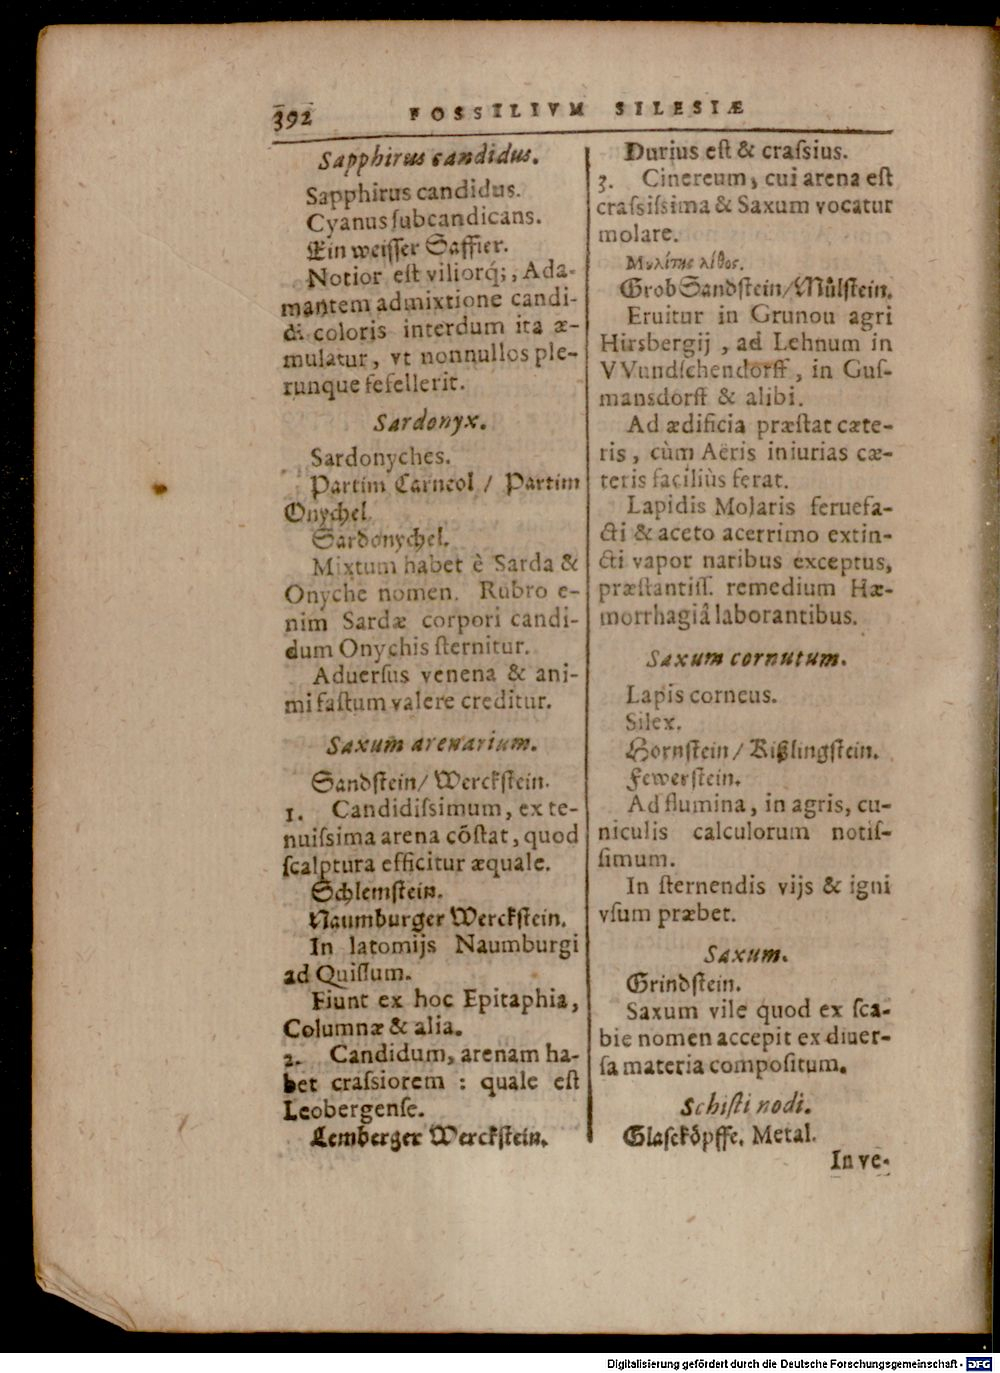 392
FOSSILIVM SILESIÆ
Sapphirus candidus.
Sapphirus candidus.
Cyanus ſubcandicans.
Ein weiſſer Saffier.
Notior eſt viliorq́;, Ada-
mantem admixtione candi-
di coloris interdum ita æ-
mulatur, vt nonnullos ple-
runque fefellerit.
Sardonyx.
Sardonyches.
Partim Carneol / Partim
Onychel.
Sardonychel.
Mixtum habet è Sarda &
Onyche nomen. Rubro e-
nim Sardæ corpori candi-
dum Onychis ſternitur.
Aduerſus venena & ani-
mi faſtum valere creditur.
Saxum arenarium.
Sandſtein/ Werckſtein.
1. Candidiſsimum, ex te-
nuiſsima arena cõſtat, quod
ſcalptura efficitur æquale.
Schlemſtein.
Naumburger Werckſtein.
In latomijs Naumburgi
ad Quiſſum.
Fiunt ex hoc Epitaphia,
Columnæ & alia.
2. Candidum, arenam ha-
bet craſsiorem : quale eſt
Leobergenſe.
Lemberger Werckſtein.
Durius eſt & craſsius.
3. Cinereum, cui arena eſt
craſsiſsima & Saxum vocatur
molare.
Μυλίτης λίθος.
Grob Sandſtein/ Můlſtein.
Eruitur in Grunou agri
Hirsbergij, ad Lehnum in
VVundſchendorff, in Guſ-
mansdorff & alibi.
Ad ædificia præſtat cæte-
ris, cùm Aëris iniurias cæ-
teris faciliùs ferat.
Lapidis Molaris feruefa-
cti & aceto acerrimo extin-
cti vapor naribus exceptus,
præſtantiſſ. remedium Hæ-
morrhagiâ laborantibus.
Saxum cornutum.
Lapis corneus.
Silex.
Hornſtein/ Kißlingſtein.
Fewerſtein.
Ad flumina, in agris, cu-
niculis calculorum notiſ-
ſimum.
In ſternendis vijs & igni
vſum præbet.
Saxum.
Grindſtein.
Saxum vile quod ex ſca-
bie nomen accepit ex diuer-
ſa materia compoſitum.
Schiſti nodi.
Glaſekȯpffe. Metal.
In ve-
Digitalisierung gefördert durch die Deutsche Forschungsgemeinschaft - DFG